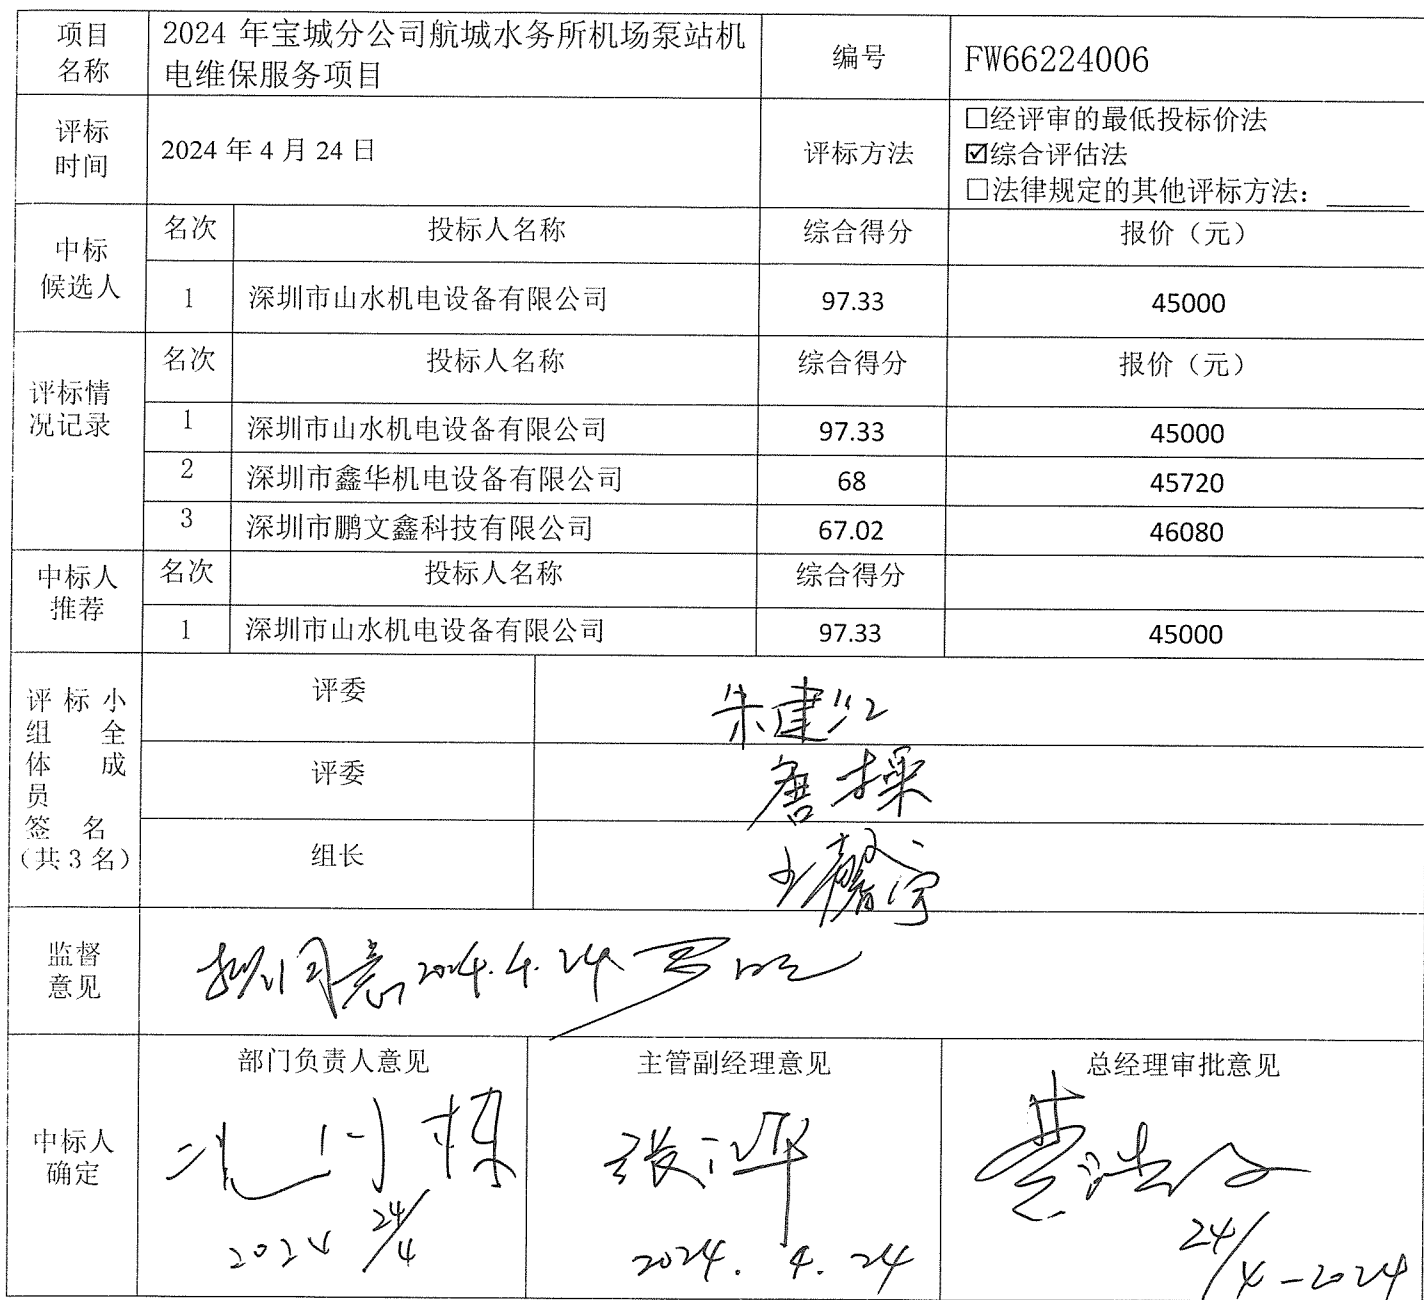 项目
名称
2024 年宝城分公司航城水务所机场泵站机
电维保服务项目
编号
FW66224006
评标
时间
2024 年 4 月 24 日
评标方法
□经评审的最低投标价法
☑综合评估法
□法律规定的其他评标方法：______
中标
候选人
名次
投标人名称
综合得分
报价（元）
1
深圳市山水机电设备有限公司
97.33
45000
评标情
况记录
名次
投标人名称
综合得分
报价（元）
1
深圳市山水机电设备有限公司
97.33
45000
2
深圳市鑫华机电设备有限公司
68
45720
3
深圳市鹏文鑫科技有限公司
67.02
46080
中标人
推荐
名次
投标人名称
综合得分
1
深圳市山水机电设备有限公司
97.33
45000
评 标 小
组 全
体 成
员
签 名
（共 3 名）
评委
朱建江
评委
组长
监督
意见
同意 2024.4.24
中标人
确定
部门负责人意见
2024 24/4
主管副经理意见
2024.4.24
总经理审批意见
24/4-2024